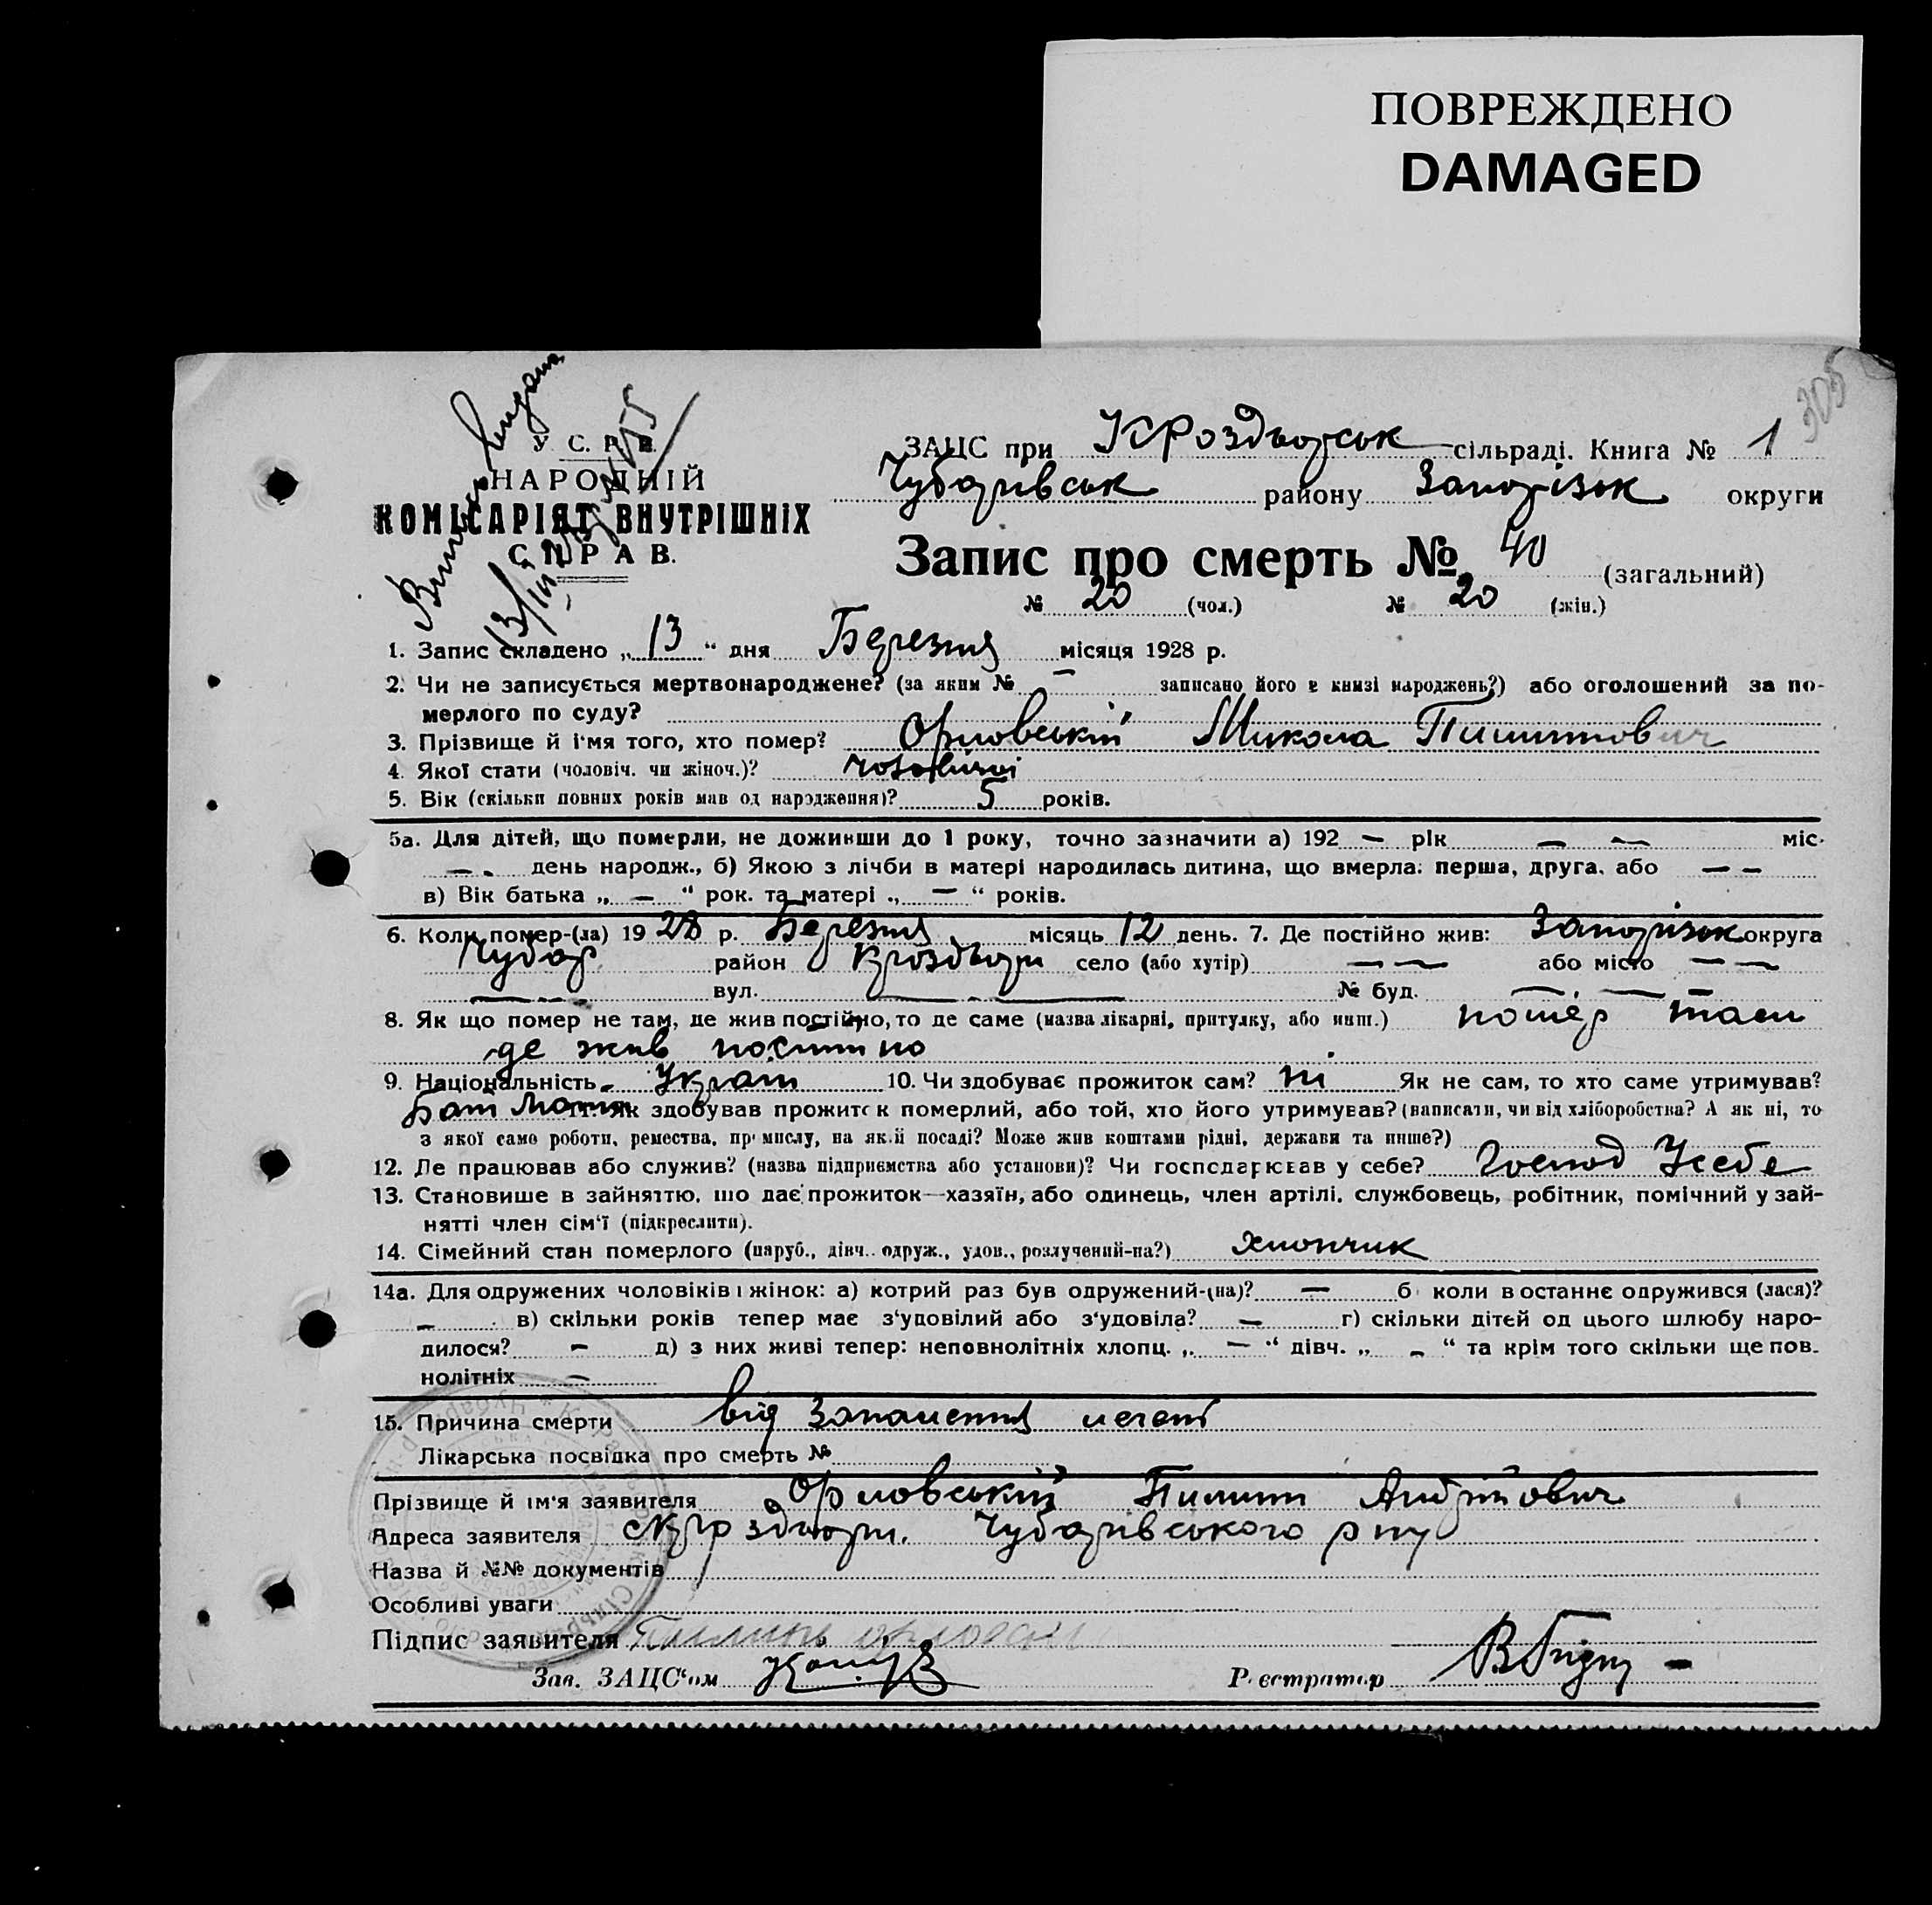 ПОВРЕЖДЕНО
DAMAGED
305
У. С. Р. Р.
НАРОДНІЙ
КОМІСАРІЯТ ВНУТРІШНІХ
СПРАВ.
ЗАЦС при К Роздорськ сільраді. Книга № 1
Чубарівськ району Запорізьк округи
Запис про смерть № 40 (загальний)
№ 20 (чол.) № 20 (жін.)
1. Запис складено „13“ дня Березня місяця 1928 р.
2. Чи не записується мертвонароджене? (за яким № — записано його в книзі народжень?) або оголошений за по-
мерлого по суду?
3. Прізвище й і'мя того, хто помер? Орловський Микола Пилипович
4. Якої стати (чоловіч. чи жіноч.)?
5. Вік (скільки повних років мав од народження)? 5 років.
5а. Для дітей, що померли, не доживши до 1 року, точно зазначити а) 192 — рік — — міс.
— . день народж., б) Якою з лічби в матері народилась дитина, що вмерла: перша, друга, або — —
в) Вік батька „ — “ рок. та матері „ — “ років.
6. Коли помер-(ла) 1928 р. Березня місяць 12 день. 7. Де постійно жив: Запорізьк округа
Чубар район Кроздори село (або хутір) — — або місто — —
вул. № буд.
8. Як що помер не там, де жив постійно, то де саме (назва лікарні, притулку, або инш.) помер там
де жив постійно
9. Національність Украін 10. Чи здобуває прожиток сам? ні Як не сам, то хто саме утримував?
Бать Мати 11. Як здобував прожиток померлий, або той, хто його утримував? (написати, чи від хліборобства? А як ні, то
з якої само роботи, ремества, промислу, на якій посаді? Може жив коштами рідні, держави та инше?)
12. Де працював або служив? (назва підприємства або установи)? Чи господарював у себе? Господ Усебе
13. Становище в зайняттю, що дає прожиток—хазяїн, або одинець, член артілі, службовець, робітник, помічний у зай-
нятті член сім'ї (підкреслити).
14. Сімейний стан померлого (паруб., дівч., одруж., удов., розлучений-на?) хлопчик
14а. Для одружених чоловіків і жінок: а) котрий раз був одружений-(на)? — б) коли в останнє одружився (лася)?
— . в) скільки років тепер має з'удовілий або з'удовіла? — г) скільки дітей од цього шлюбу наро-
дилося? — д) з них живі тепер: неповнолітніх хлопц. „ — “ дівч. „ — “ та крім того скільки ще пов-
нолітніх —
15. Причина смерти від Запалення легені
Лікарська посвідка про смерть №
Прізвище й ім'я заявителя Орловський Пилип Андрійович
Адреса заявителя с Кроздори. Чубарівського р ну
Назва й №№ документів
Особливі уваги
Підпис заявителя Пилип
Зав. ЗАЦС'ом
Реєстратор